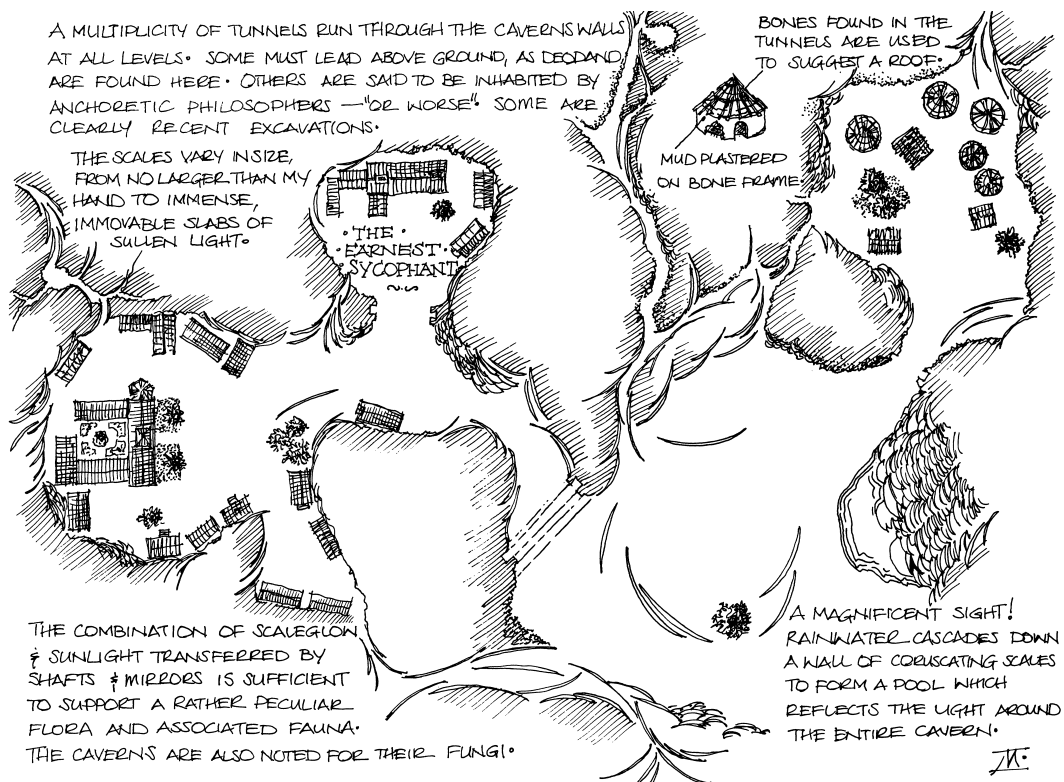 A MULTIPLICITY OF TUNNELS RUN THROUGH THE CAVERNS WALLS
AT ALL LEVELS. SOME MUST LEAD ABOVE GROUND, AS DEODAND
ARE FOUND HERE. OTHERS ARE SAID TO BE INHABITED BY
ANCHORETIC PHILOSOPHERS — "OR WORSE". SOME ARE
CLEARLY RECENT EXCAVATIONS.
BONES FOUND IN THE
TUNNELS ARE USED
TO SUGGEST A ROOF.
MUD PLASTERED
ON BONE FRAME
THE SCALES VARY IN SIZE,
FROM NO LARGER THAN MY
HAND TO IMMENSE,
IMMOVABLE SLABS OF
SULLEN LIGHT.
· THE ·
· EARNEST ·
SYCOPHANT
THE COMBINATION OF SCALEGLOW
& SUNLIGHT TRANSFERRED BY
SHAFTS & MIRRORS IS SUFFICIENT
TO SUPPORT A RATHER PECULIAR
FLORA AND ASSOCIATED FAUNA.
THE CAVERNS ARE ALSO NOTED FOR THEIR FUNGI.
A MAGNIFICENT SIGHT!
RAINWATER CASCADES DOWN
A WALL OF CORUSCATING SCALES
TO FORM A POOL WHICH
REFLECTS THE LIGHT AROUND
THE ENTIRE CAVERN.